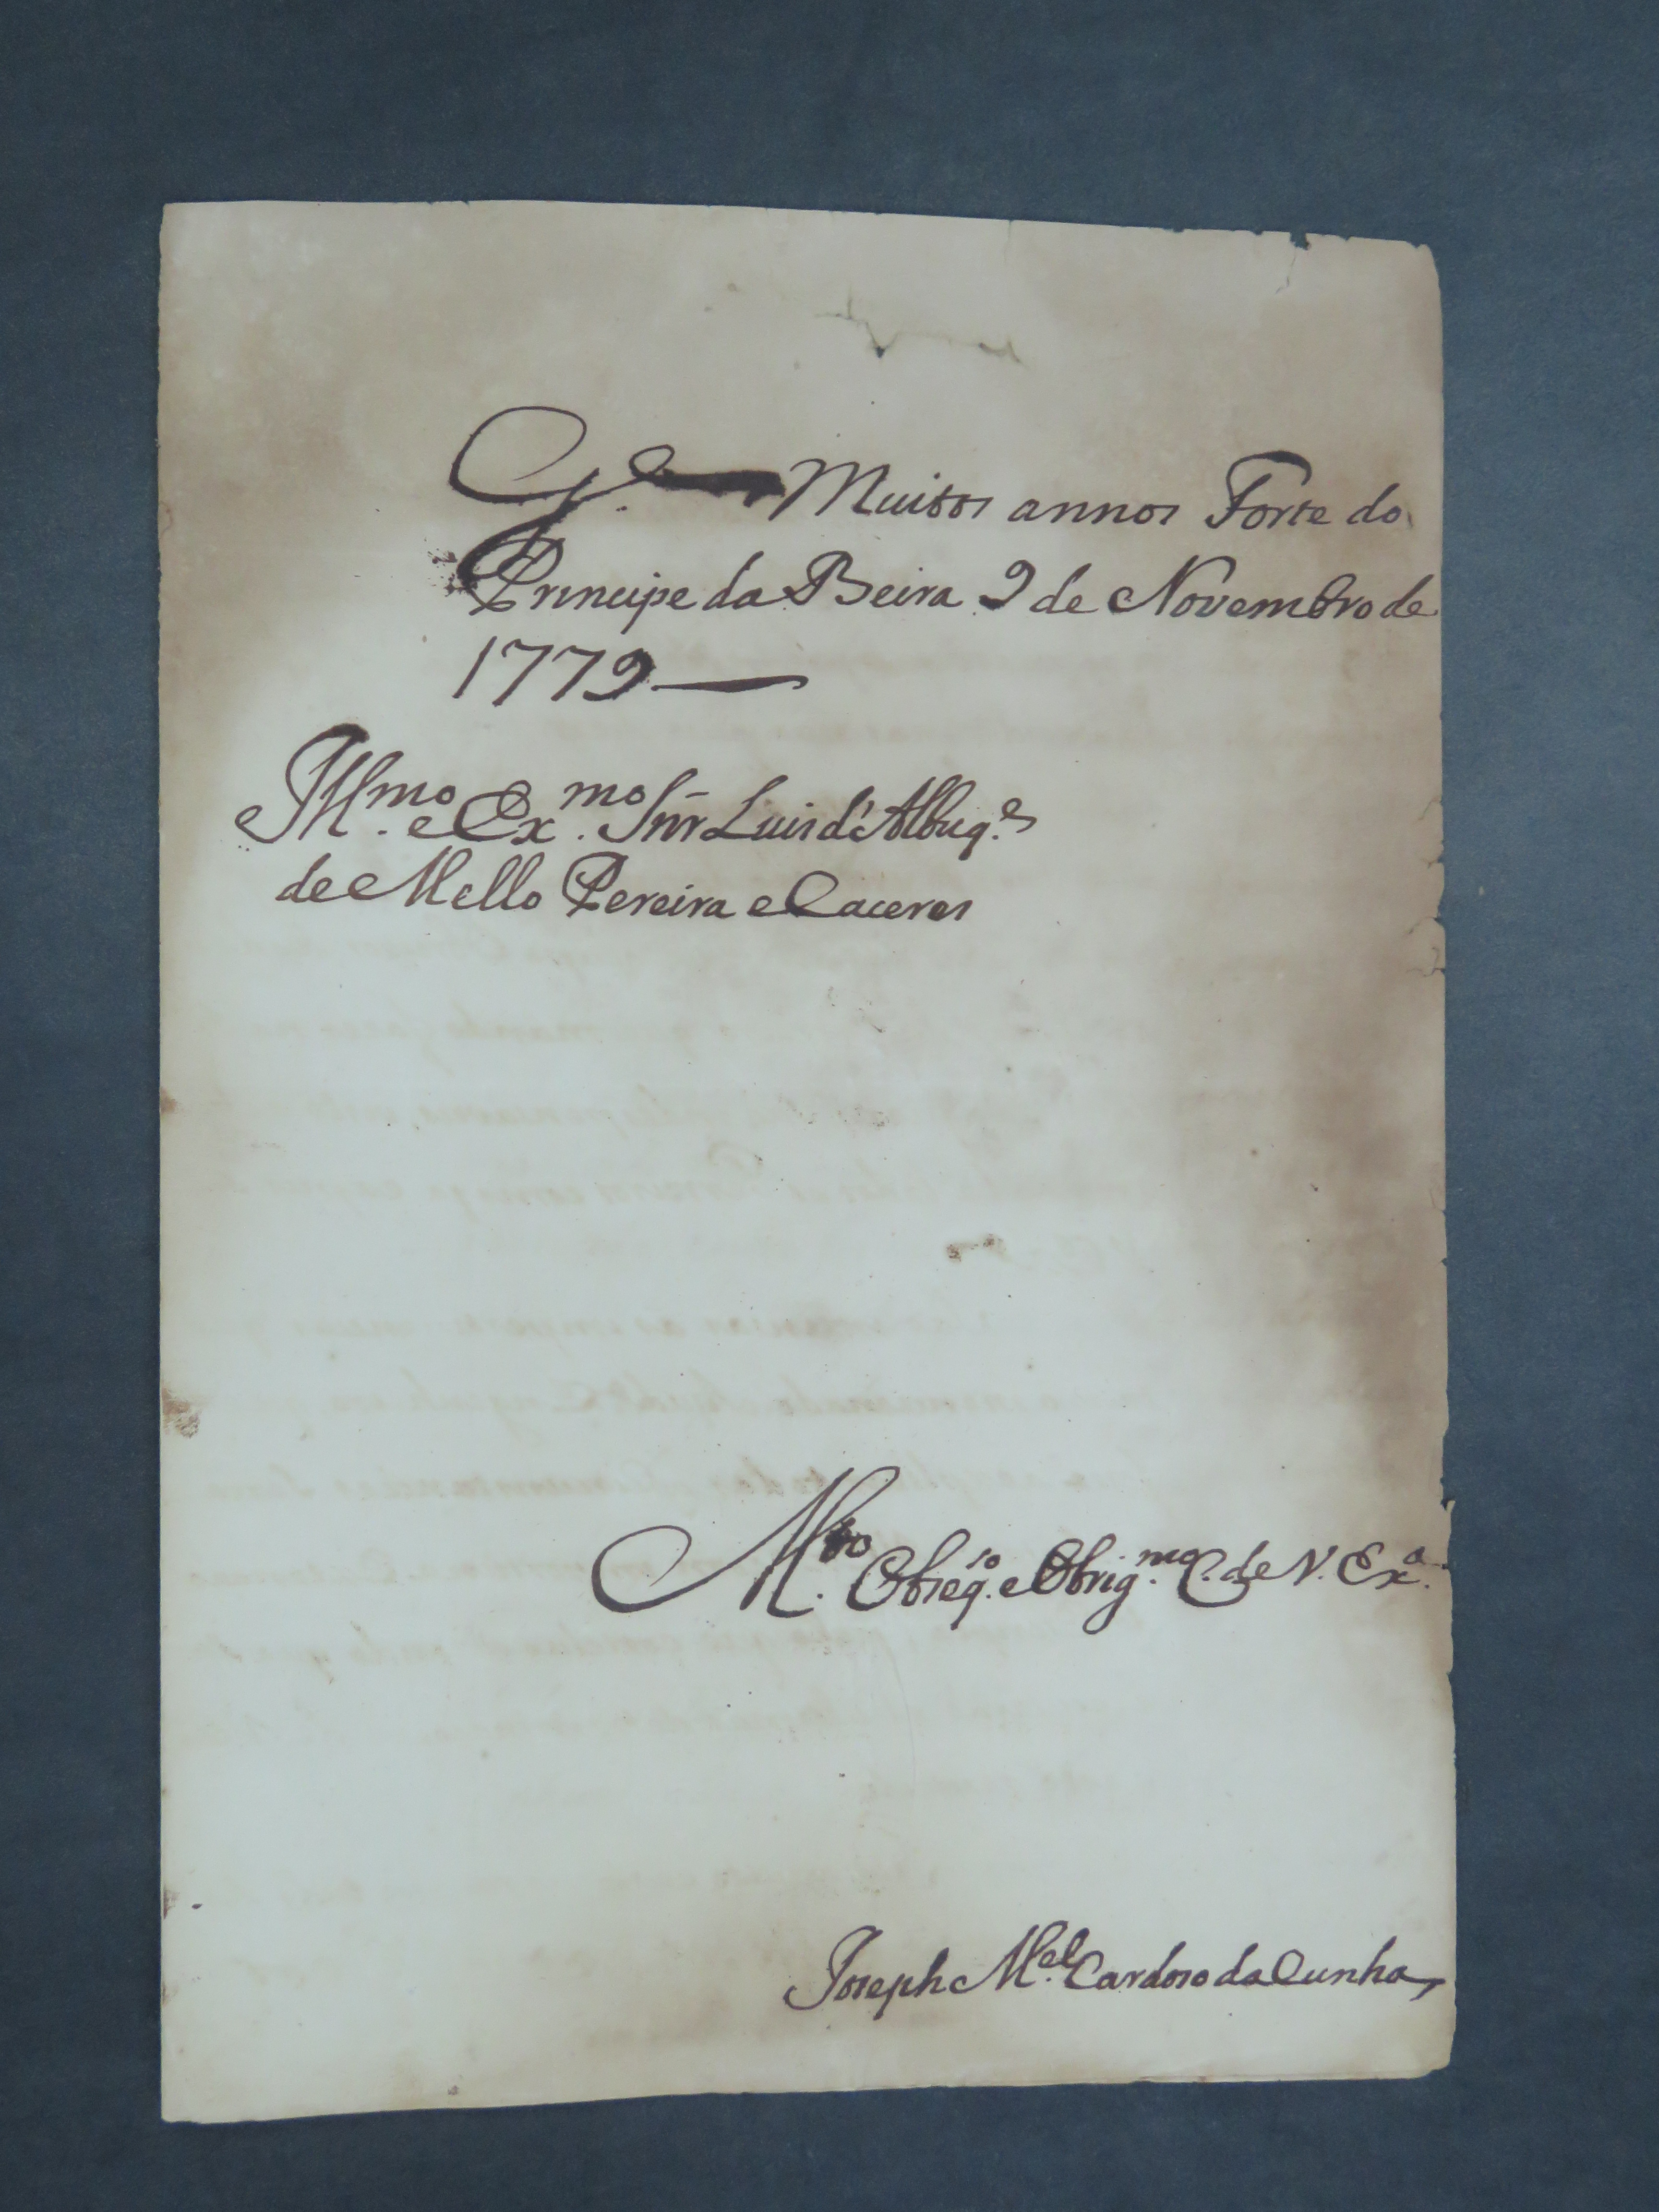 G.e Muitos annos Forte do
Principe da Beira 9 de Novembro de
1779
Ill.mo e Ex.mo Snr Luis d'Albuq.e
de Mello Pereira e Caceres
M.to Obzeq.zo e Obrig.mo C. de V. Ex.a
Joseph M.el Cardoso da Cunha